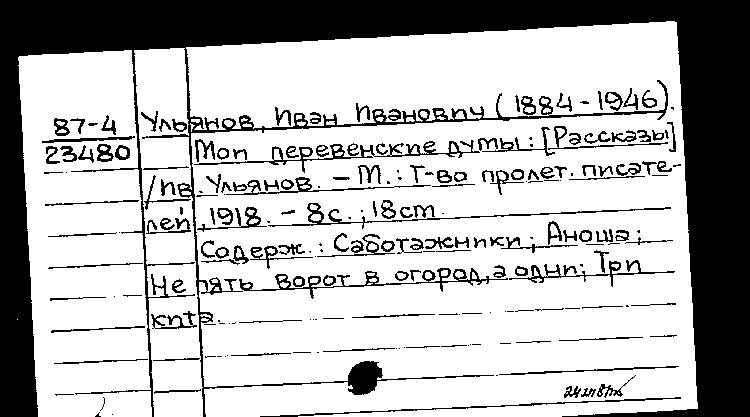 87-4 Ульянов, Иван Иванович (1884-1946).
23480 Мои деревенские думы: [Рассказы]
/Ив. Ульянов. - М.: Т-во пролет. писате-
лей, 1918. - 8с.; 18см.
Содерж.: Саботажники; Аноша;
Не пять ворот в огород, а одни; Три
кита.